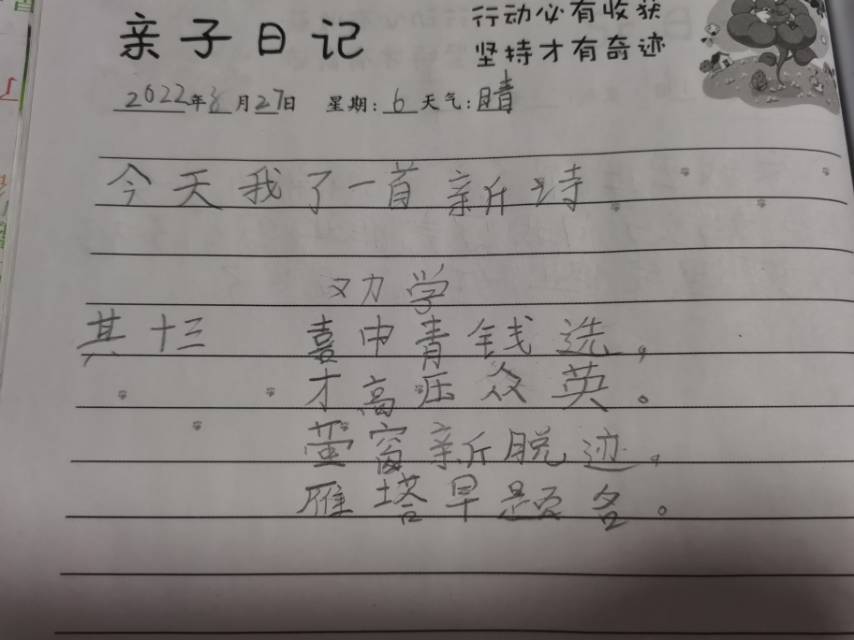 亲子日记
行动必有收获
坚持才有奇迹
2022年8月27日 星期:6天气:晴
今天我了一首新诗
劝学
其十三 喜中青钱选，
才高压众英。
萤窗新脱迹，
雁塔早题名。